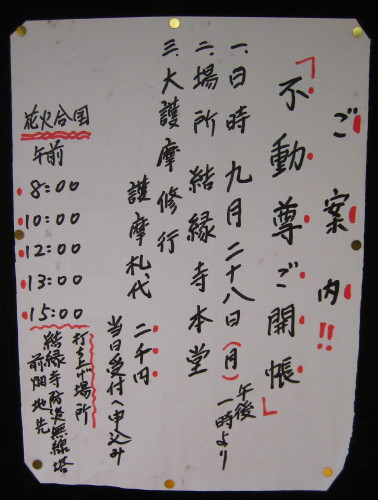 ご案内!!
「不動尊ご開帳」
一、日時 九月二十八日(月)午後一時より
二、場所 結縁寺本堂
三、大護摩修行
護摩札代 二千円
当日受付へ申込み
花火合図
午前
8:00
10:00
12:00
13:00
15:00
打ち上げ場所
結縁寺防災無線塔
前畑地先